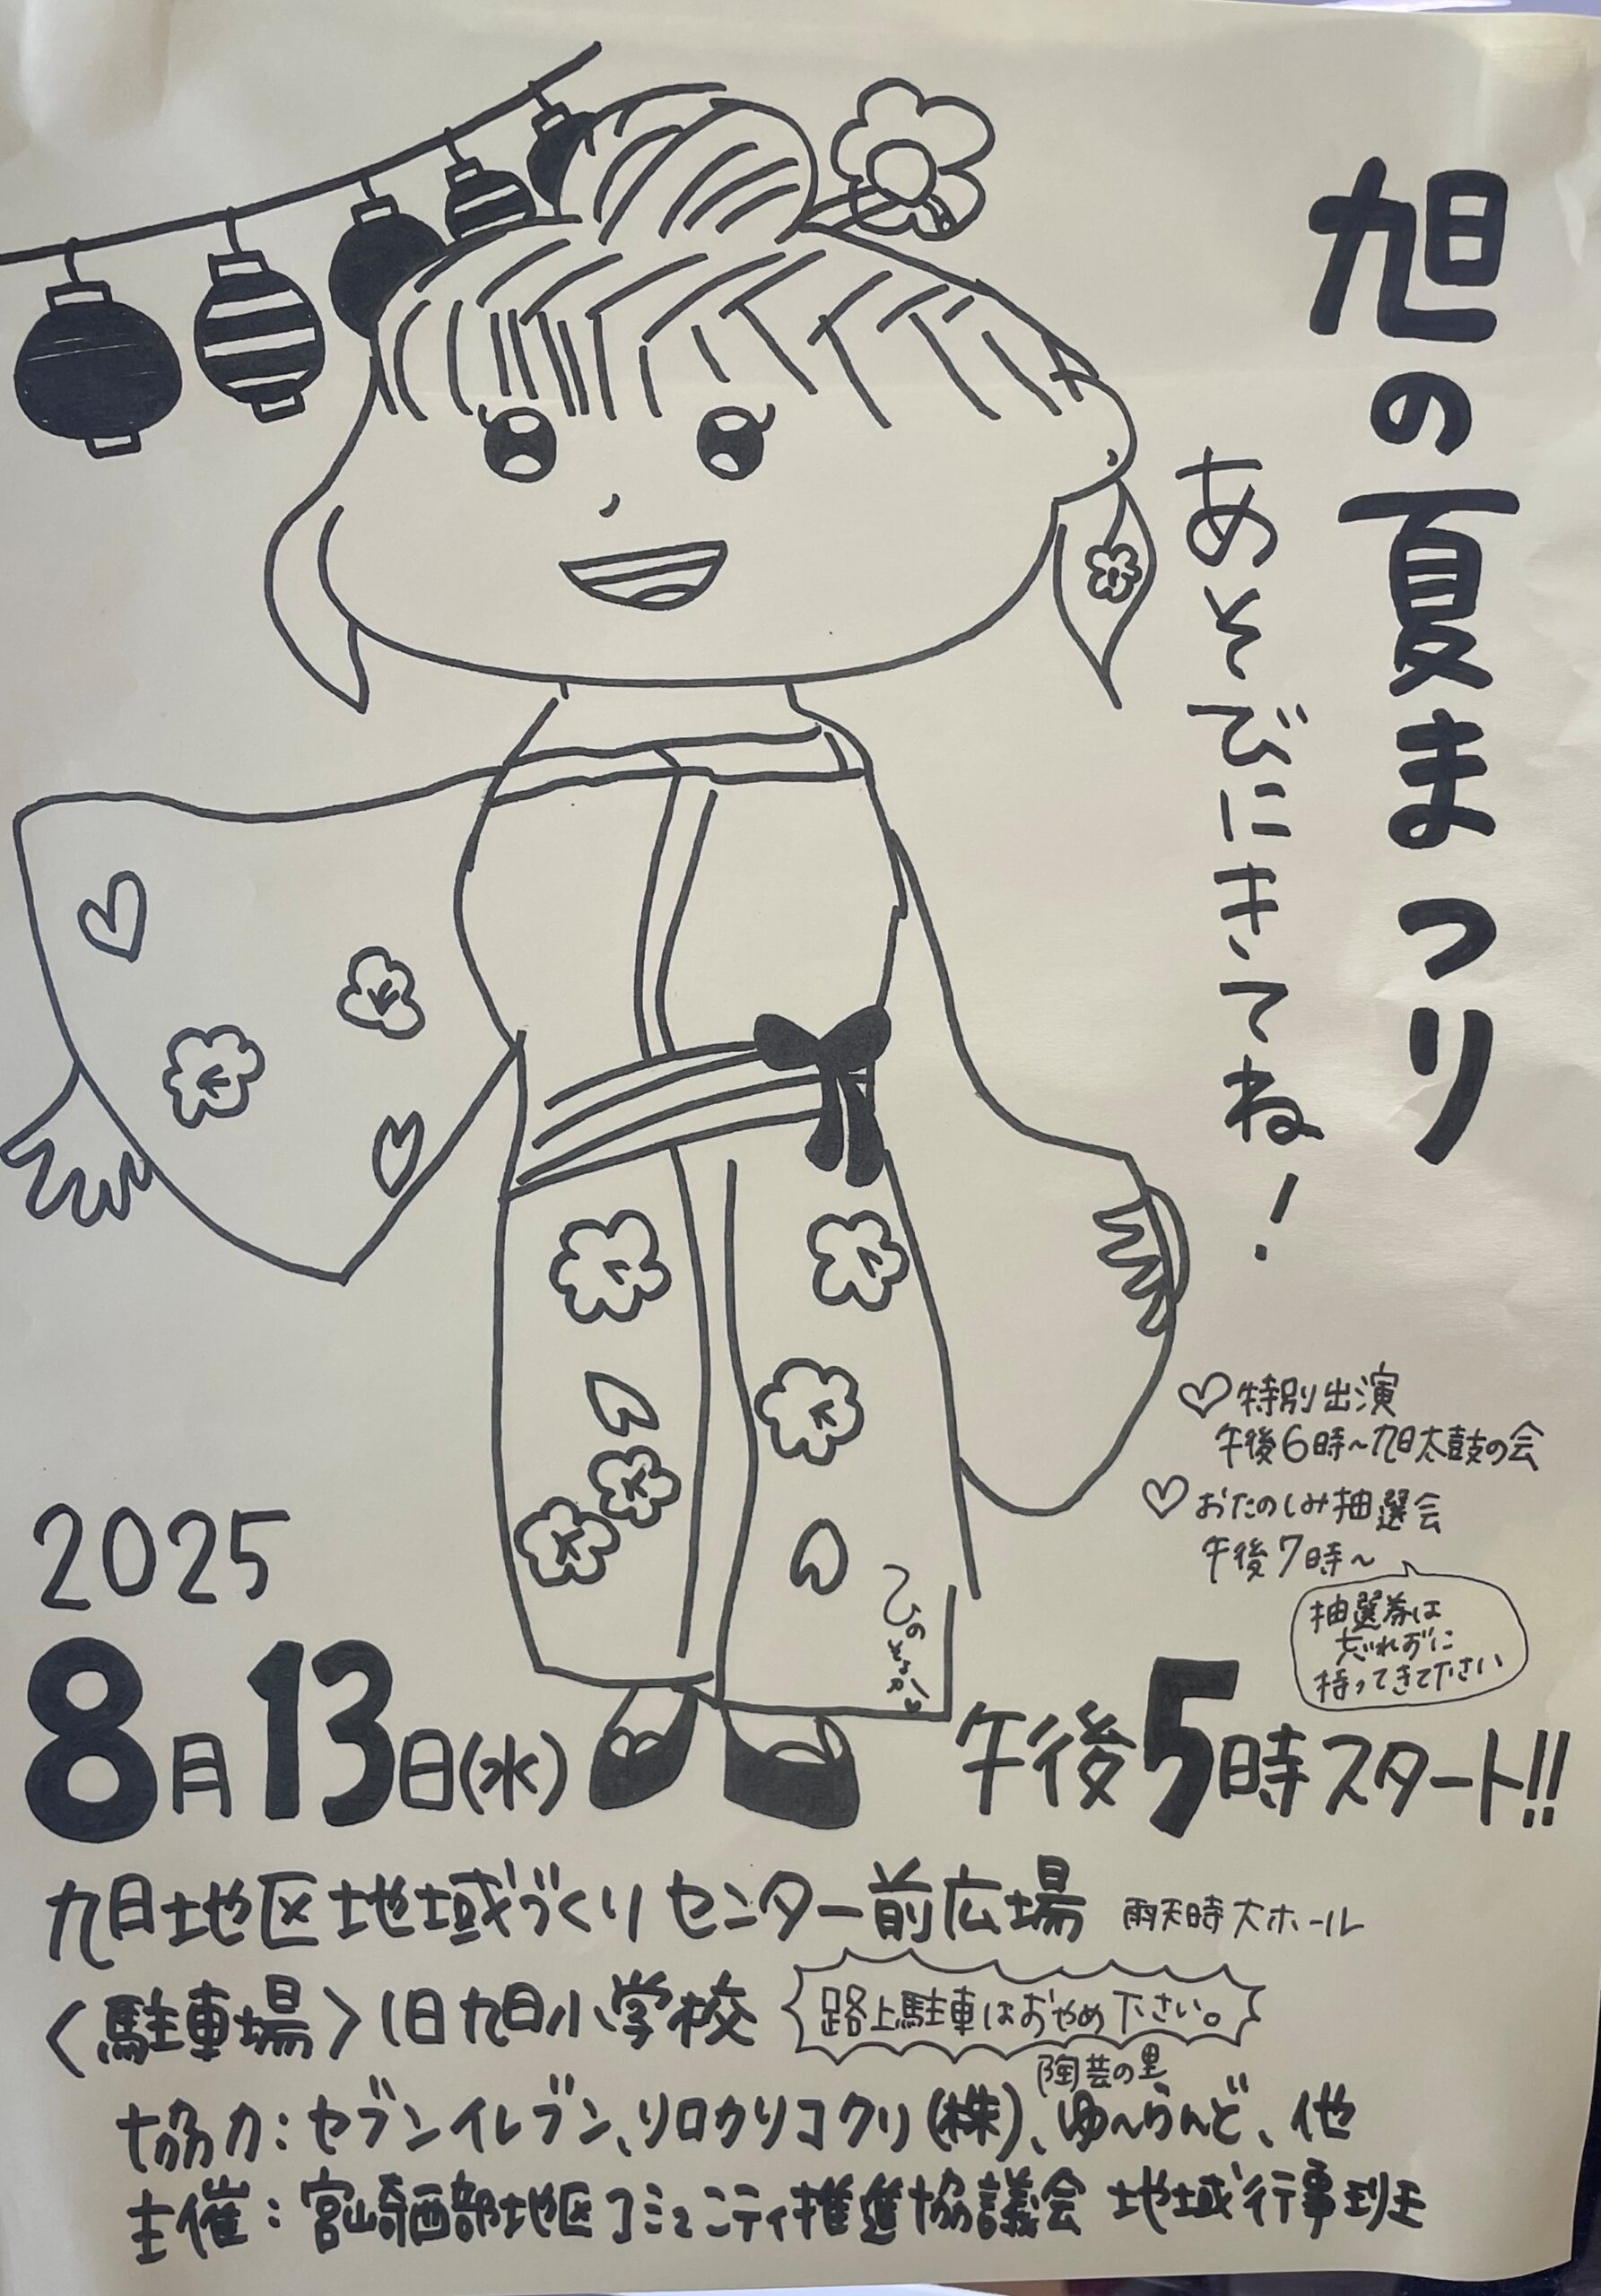 旭の夏まつり
あそびにきてね!
♡特別出演
午後6時~旭太鼓の会
♡おたのしみ抽選会
午後7時~
抽選券は
忘れずに
持ってきて下さい
2025
8月13日(水)
午後5時スタート!!
旭地区地域づくりセンター前広場 雨天時大ホール
<駐車場>旧旭小学校
路上駐車はおやめ下さい。
陶芸の里
協力:セブンイレブン、リロクリコクリ(株)、ゆ~らんど、他
主催:宮崎西部地区コミュニティ推進協議会 地域行事班